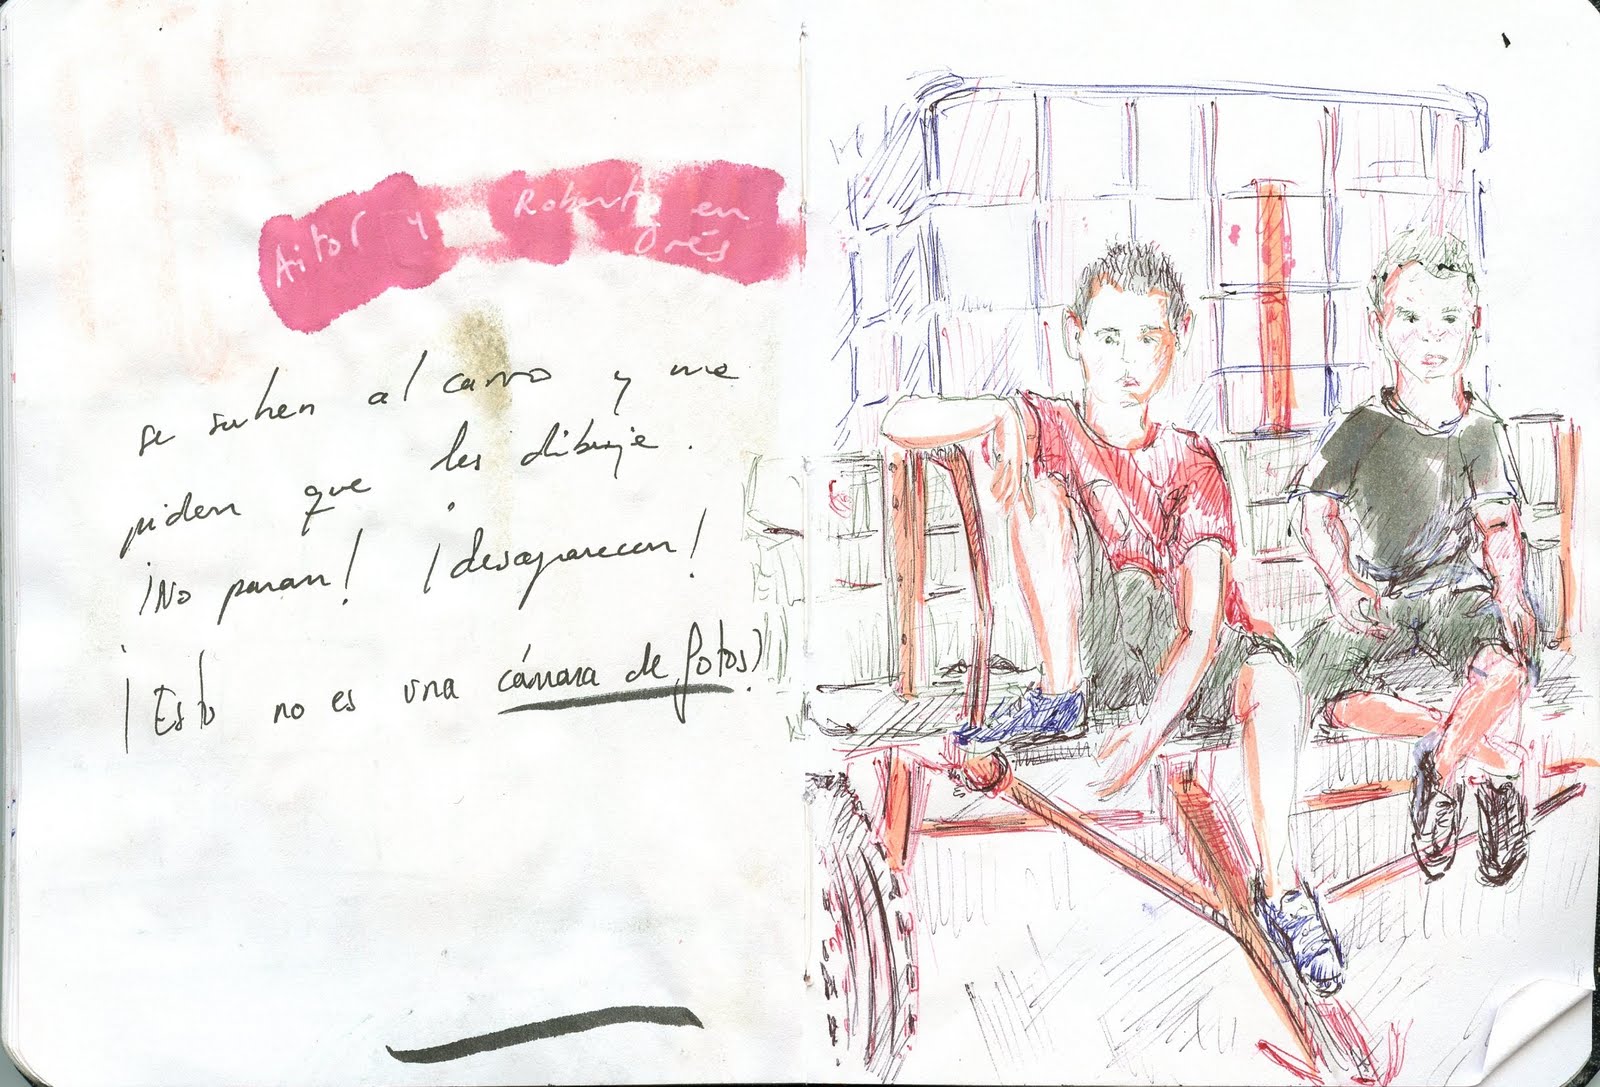 Aitor y Roberto en
Orés
se suben al carro y me
piden que les dibuje.
¡No paran! ¡desaparecen!
¡Esto no es una cámara de fotos!